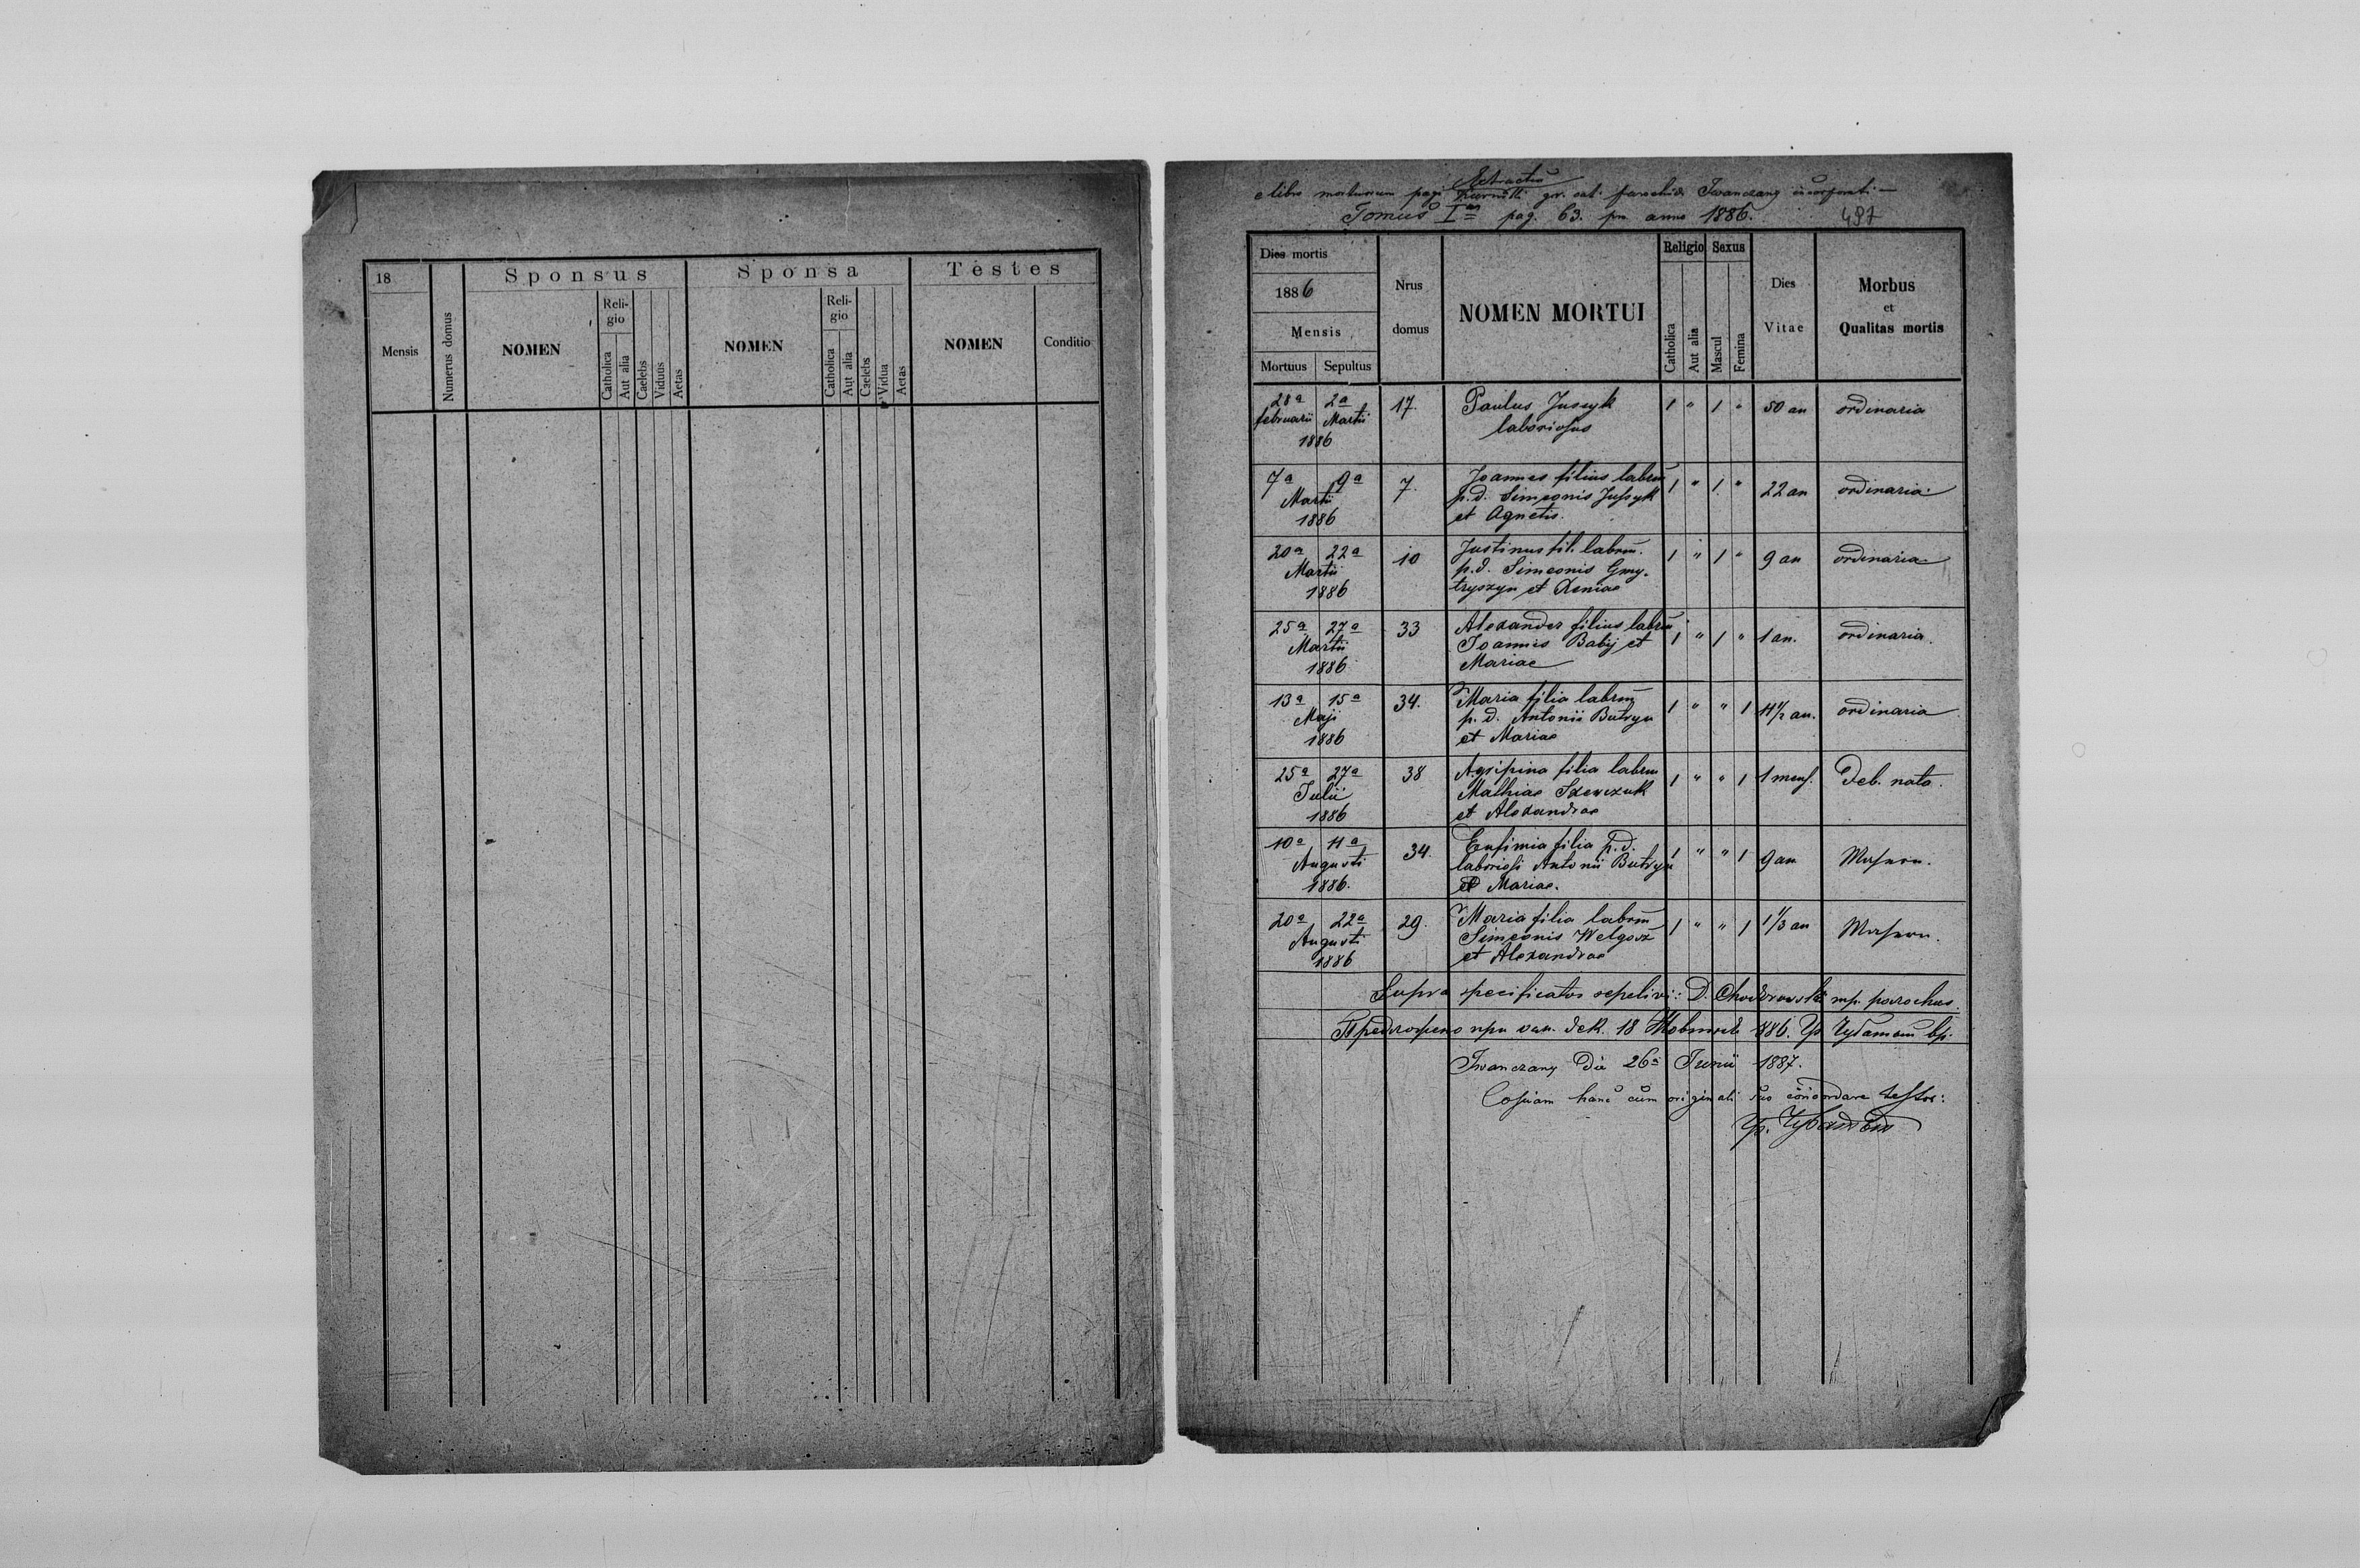 18
Mensis
Numerus domus
Sponsus
NOMEN
Reli-
gio
Catholica
Aut alia
Caelebs
Viduus
Aetas
Sponsa
NOMEN
Reli-
gio
Catholica
Aut alia
Caelebs
Vidua
Aetas
Testes
NOMEN
Conditio
Extractus
e libro mortuorum pagi gr. cat. parochiae Iwanczany incorporati
Tomus I pag. 63. pro anno 1886.
497
Dies mortis
1886
Mensis
Mortuus
Sepultus
Nrus
domus
NOMEN MORTUI
Religio
Catholica
Aut alia
Sexus
Mascul
Femina
Dies
Vitae
Morbus
et
Qualitas mortis
28a 2a 17. Paulus Juszyk 1 " 1 " 50 an ordinaria
februarii Martii laboriosus
1886
7a 9a 7. Joannes filius labrm 1 " 1 " 22 an ordinaria
Martii p.d. Simeonis Jussyk
1886 et Agnetis.
20a 22a 10 Justinus fil. labrm. 1 " 1 " 9 an ordinaria
Martii p.d. Simeonis Gmy-
1886 tryszyn et Xeniae
25a 27a 33 Alexander filius labrm 1 " 1 " 1 an. ordinaria
Martii Joannis Babij et
1886 Mariae
13a 15a 34. Maria filia labrm 1 " " 1 11 1/2 an. ordinaria
Maji p.d. Antonii Butryn
1886 et Mariae
25a 27a 38 Agripina filia labrm 1 " " 1 1 mens. Deb. nata.
Julii Mathiae Szewczuk
1886 et Alexandrae
10a 11a 34. Eufimia filia p.d. 1 " " 1 9 an
Augusti laboriosi Antonii Butryn
1886. et Mariae.
20a 22a 29. Maria filia labrm 1 " " 1 1 1/3 an
Augusti Simeonis Welgosz
1886 et Alexandrae
Supra specificatos sepelivi: D. Chodorowski mp. parochus.
Предложено при дек. 18 886.
Iwanczany Die 26a Junii 1887.
Copiam hanc cum originali suo concordare testor: